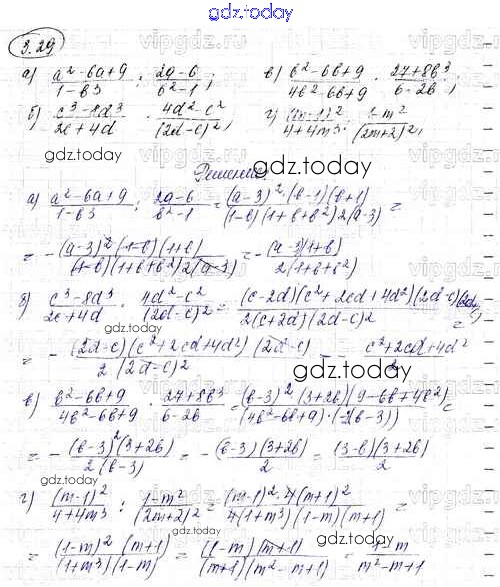 gdz.today
3.29
а) (a²-6a+9)/(1-b³) : (2a-6)/(b²-1); в) (b²-6b+9)/(4b²-6b+9) · (27+8b³)/(6-2b);
б) (c³-8d³)/(2c+4d) · (4d²-c²)/(2d-c)²; г) (m-1)²/(4+4m³) : (1-m²)/(2m+2)²;
gdz.today gdz.today
Решение:
gdz.today
а) (a²-6a+9)/(1-b³) : (2a-6)/(b²-1) = (a-3)²·(b-1)(b+1)/(1-b)(1+b+b²)2(a-3) =
= -(a-3)²(1-b)(1+b)/(1-b)(1+b+b²)2(a-3) = -(a-3)(1+b)/2(1+b+b²)
gdz.today
б) (c³-8d³)/(2c+4d) · (4d²-c²)/(2d-c)² = (c-2d)(c²+2cd+4d²)(2d-c)/2(c+2d)(2d-c)²
gdz.today
= -(2d-c)(c²+2cd+4d²)(2d-c)/2(2d-c)² = -(c²+2cd+4d²)/2
gdz.today
в) (b²-6b+9)/(4b²-6b+9) · (27+8b³)/(6-2b) = (b-3)²(3+2b)(9-6b+4b²)/(4b²-6b+9)·(-2(b-3)) =
gdz.today
= -(b-3)²(3+2b)/2(b-3) = -(b-3)(3+2b)/2 = (3-b)(3+2b)/2
г) (m-1)²/(4+4m³) : (1-m²)/(2m+2)² = (m-1)²·4(m+1)²/4(1+m³)(1-m)(m+1) =
gdz.today
= (1-m)²(m+1)/(1+m³)(1-m) = (1-m)(m+1)/(m+1)(m²-m+1) = (1-m)/(m²-m+1)
gdz.today